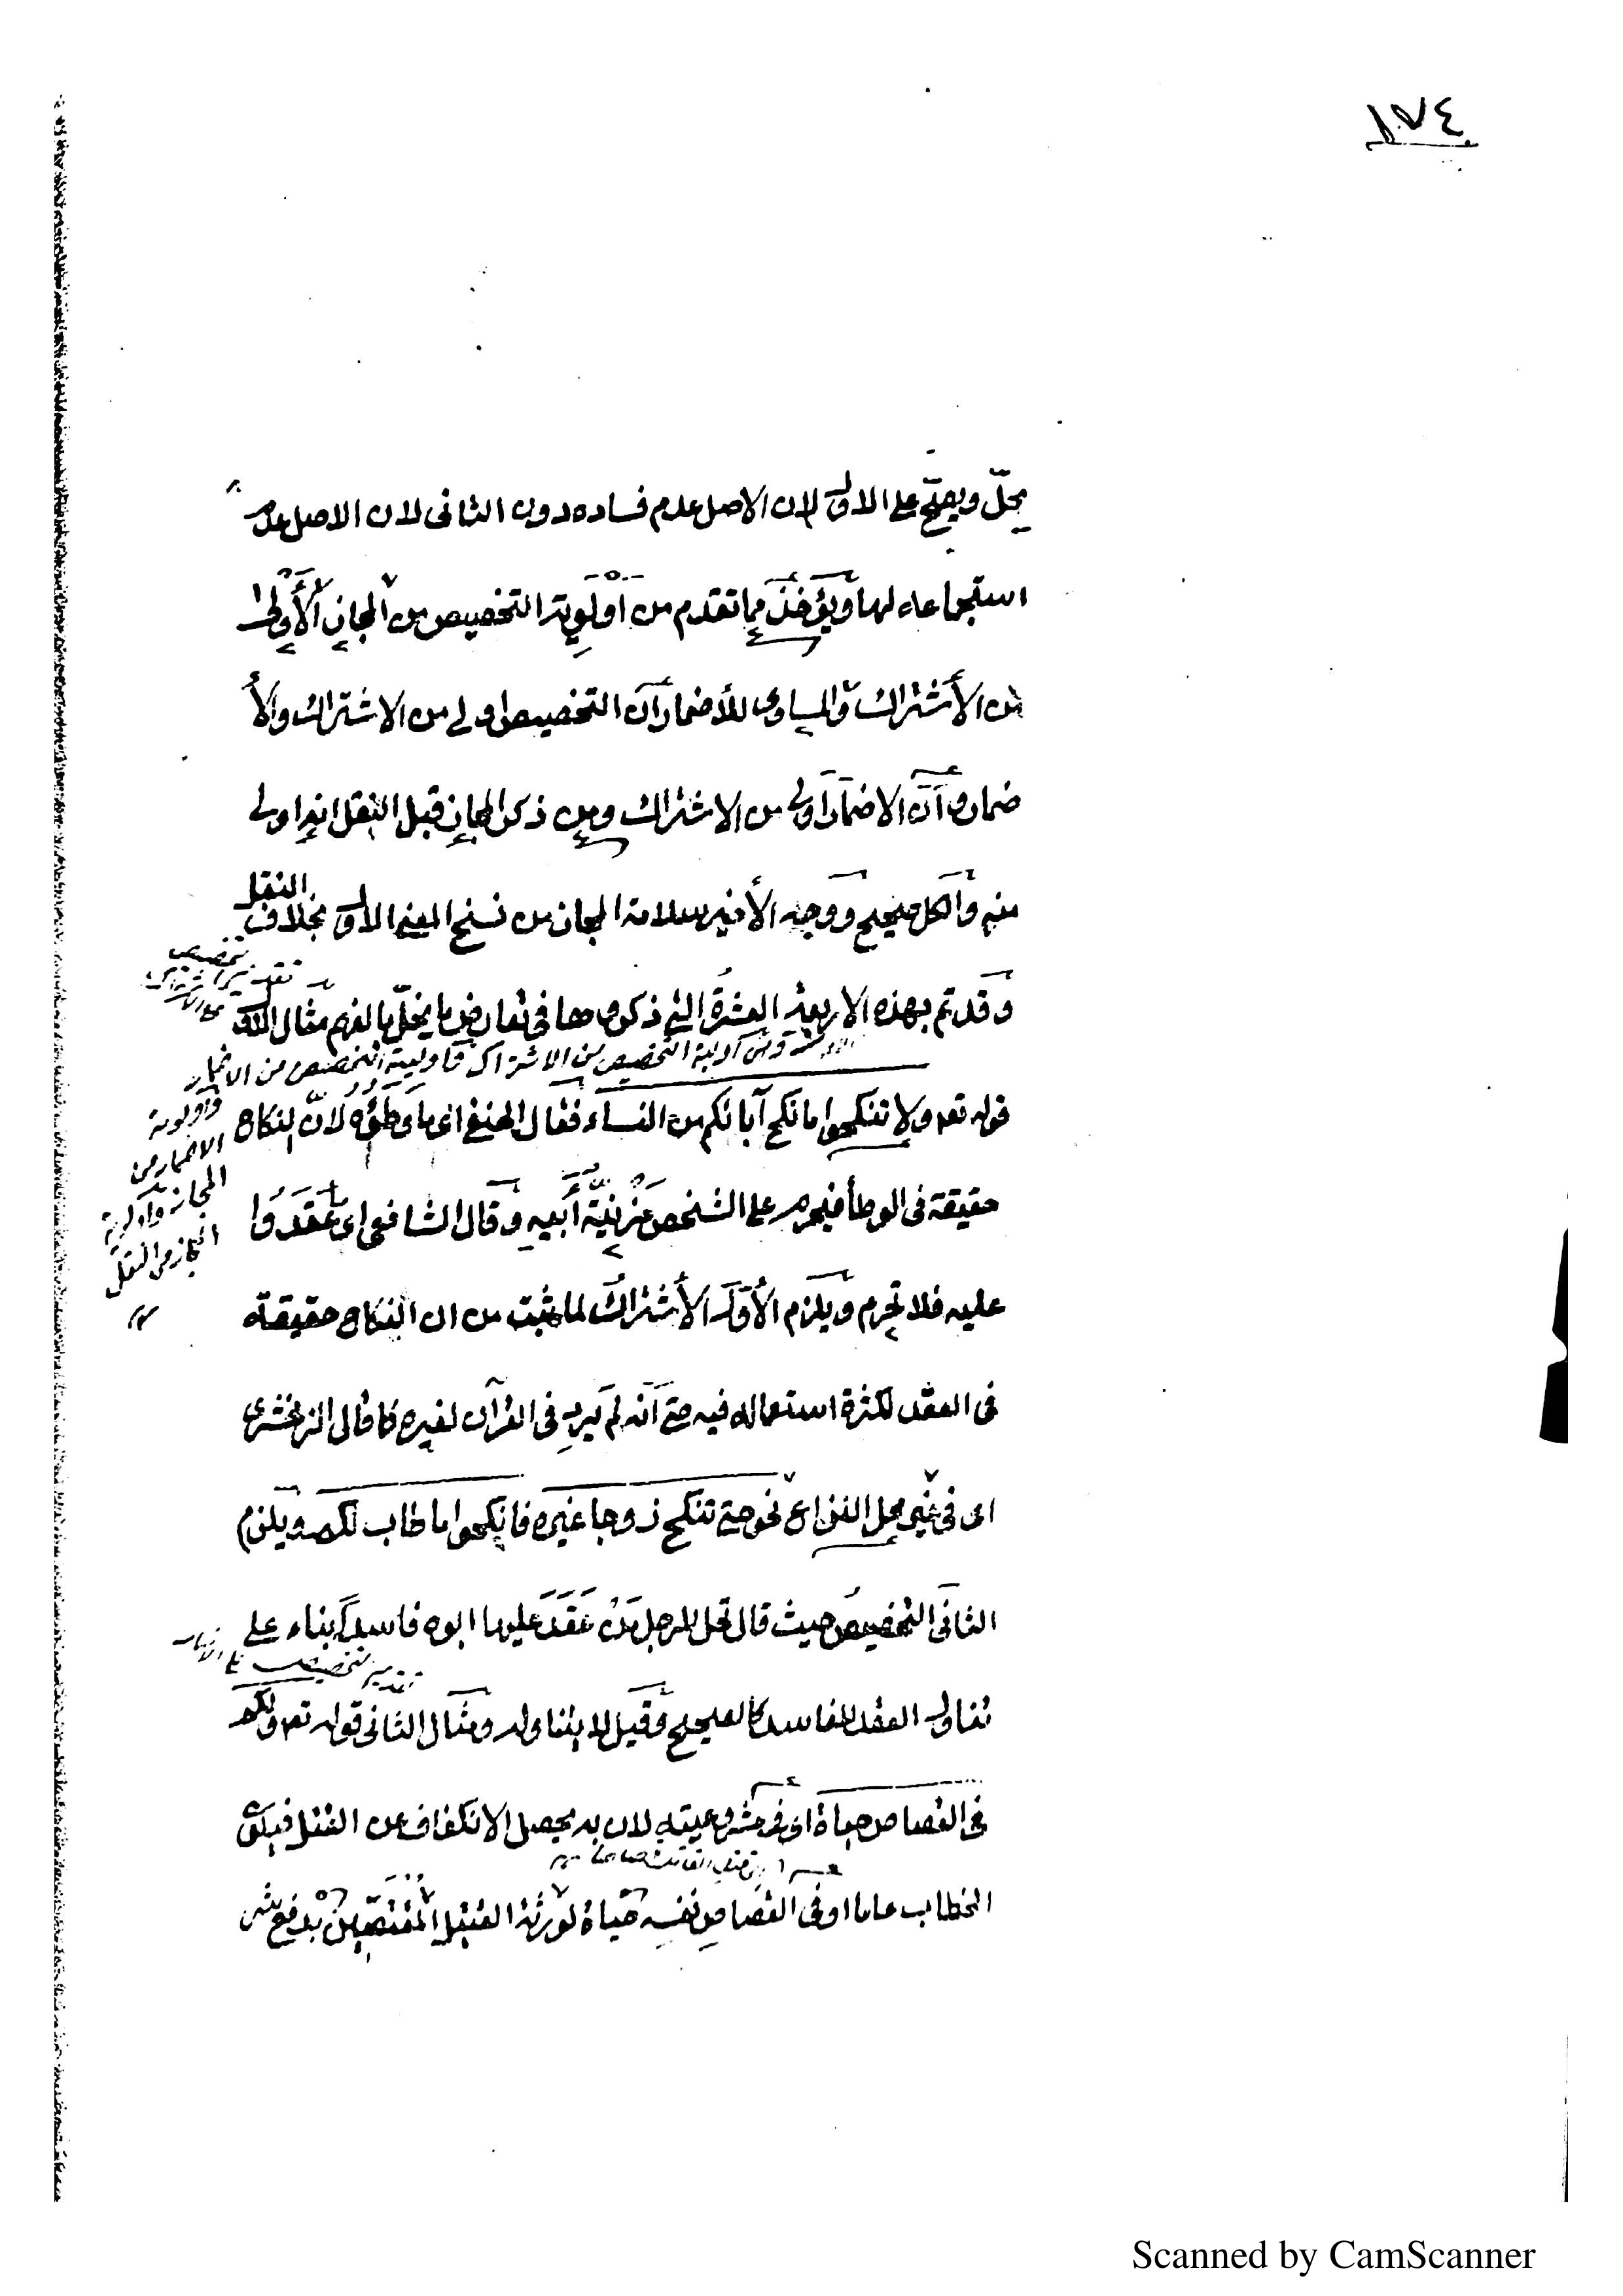 ١٧٤
يحلّ ويصحّ على الاول لان الاصل عدم فساده دون الثانى لان الاصل عدم
استجماعه لها ويؤخذ مما تقدم من اولوية التخصيص من المجاز الأولى
من الأشتراك والمساوى للأضمار ان التخصيص اولى من الاشتراك والأ
ضمار وان الاضمار اولى من الاشتراك ومن ذكر المجاز قبل النقل انه اولى
منه والكل صحيح ووجه الأخير سلامة المجاز من نسخ المعنى الاول بخلاف النقل
وقد تم بهذه الاربعة العشرة التى ذكروها فى تعارض ما يخلّ بالفهم مثال الاول
اولية التخصيص من الاشتراك واولية التخصيص من الاضمار
واولوية
الاضمار من
المجاز واولوية
المجاز من النقل
قوله تعـ ولا تنكحوا ما نكح آبائكم من النساء فقال الحنفى اى ما وطئوه لانّ النكاح
حقيقة فى الوطأ فيحرم على الشخص مزنيّة أبيه وقال الشافعى اى ما عقدوا
عليه فلا تحرم ويلزم الأول الأشتراك لما ثبت من ان النكاح حقيقة
فى العقد لكثرة استعماله فيه حتى انه لم يرد فى القرآن لغيره كما قال الزمخشرى
اى فى غير محل النزاع نحو حتى تنكح زوجا غيره فانكحوا ما طاب لكم ويلزم
الثانى التخصيص حيث قال تحل للرجل من عقد عليها ابوه فاسدا بناء على
تناول العقد للفاسد كالصحيح وقيل لا يتناوله ومثال الثانى قوله تعـ ولكم
فى القصاص حياة اى فى مشروعيته لان به يحصل الانكفاف عن القتل فيكون
الخطاب عاما او فى القصاص نفسه حياة لورثة القتيل المقتصّين بدفع شر
Scanned by CamScanner